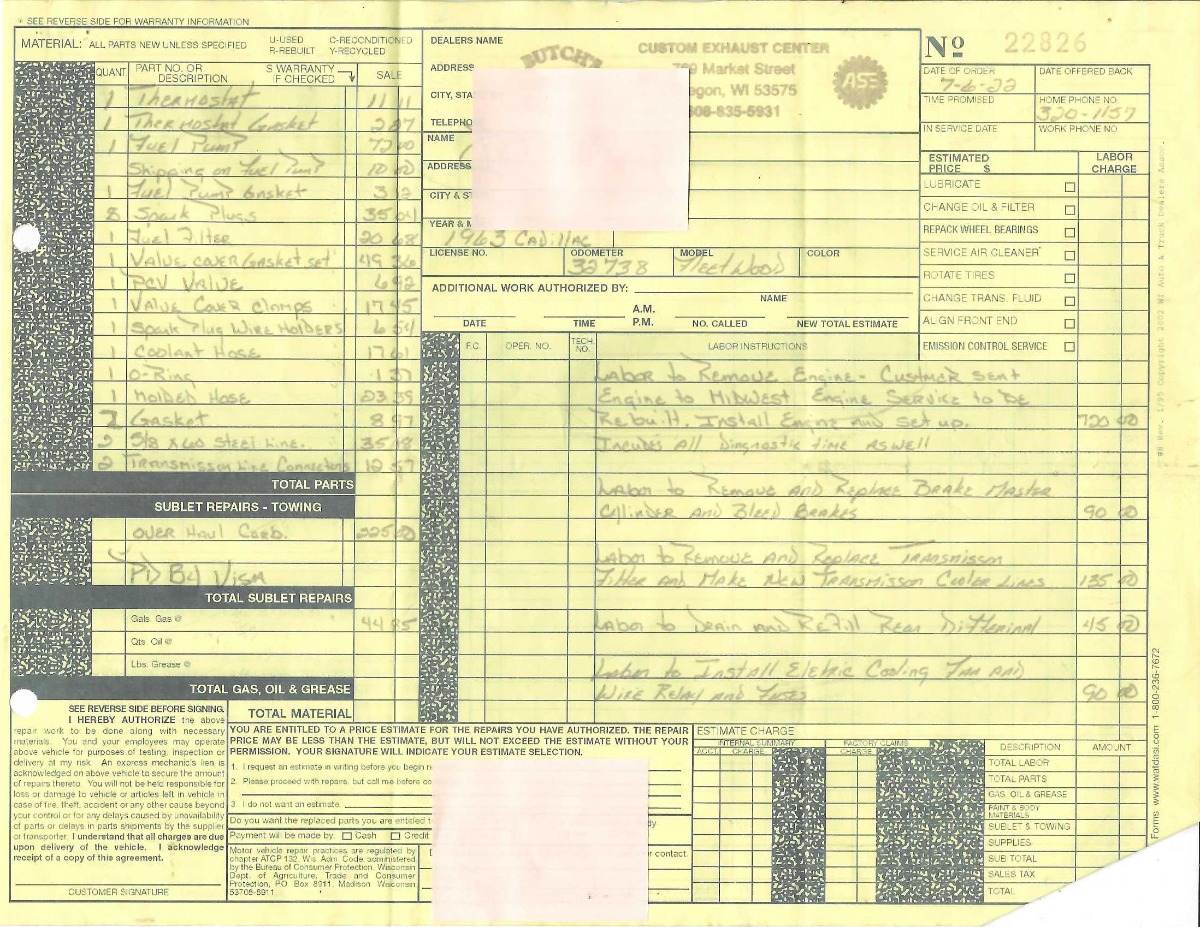 * SEE REVERSE SIDE FOR WARRANTY INFORMATION
MATERIAL: ALL PARTS NEW UNLESS SPECIFIED
U-USED C-RECONDITIONED
R-REBUILT Y-RECYCLED
QUANT. PART NO. OR DESCRIPTION S WARRANTY IF CHECKED SALE
1 Thermostat 11 11
1 Thermostat Gasket 2 87
1 Fuel Pump
Shipping on Fuel Pump 10 00
1 Fuel Pump Gasket 3 12
8 Spark Plugs 35 04
1 Fuel Filter 20 68
1 Value cover Gasket set 49 36
1 PCV Value 6 92
1 Value Cover Clamps 17 45
1 Spark Plug Wire Holders 6 54
1 Coolant Hose 17 61
1 O-Ring 1 37
1 Molded Hose 23 39
2 Gasket 8 97
2 5/8 x 60 Steel Line. 35 18
2 Transmisson Line Connectors 12 57
TOTAL PARTS
SUBLET REPAIRS - TOWING
OVER Haul Carb. 225 00
PD By Visa
TOTAL SUBLET REPAIRS
Gals. Gas @ 44 85
Qts. Oil @
Lbs. Grease @
TOTAL GAS, OIL & GREASE
TOTAL MATERIAL
DEALERS NAME
BUTCH'S
CUSTOM EXHAUST CENTER
Market Street
WI 53575
835-5931
ASE
ADDRESS
CITY,
NAME
ADDRESS
CITY &
YEAR &
1963 Cadillac
LICENSE NO. ODOMETER MODEL COLOR
32738 Fleetwood
No 22826
DATE OF ORDER DATE OFFERED BACK
7-6-22
TIME PROMISED HOME PHONE NO.
320-1157
IN SERVICE DATE WORK PHONE NO.
ESTIMATED PRICE $ LABOR CHARGE
LUBRICATE
CHANGE OIL & FILTER
REPACK WHEEL BEARINGS
SERVICE AIR CLEANER
ROTATE TIRES
CHANGE TRANS. FLUID
ALIGN FRONT END
EMISSION CONTROL SERVICE
ADDITIONAL WORK AUTHORIZED BY:
NAME
A.M.
P.M.
DATE TIME NO. CALLED NEW TOTAL ESTIMATE
F.C. OPER. NO. TECH. NO. LABOR INSTRUCTIONS
Labor to Remove Engine - Custmer sent
Engine to Midwest Engine Service to be
Rebuilt. Install Engine and set up. 720 00
Incudes All Diagnostic time as well
Labor to Remove and Replace Brake Master
Cylinder and Bleed Brakes 90 00
Labor to Remove and Replace Transmisson
Filter and Make New Transmisson Cooler Lines 135 00
Labor to Drain and Refill Rear Differinal 45 00
Labor to Install Eletric Cooling Fan and
Wire Relay and Fuses 90 00
SEE REVERSE SIDE BEFORE SIGNING.
I HEREBY AUTHORIZE the above
repair work to be done along with necessary
materials. You and your employees may operate
above vehicle for purposes of testing, inspection or
delivery at my risk. An express mechanic's lien is
acknowledged on above vehicle to secure the amount
of repairs thereto. You will not be held responsible for
loss or damage to vehicle or articles left in vehicle in
case of fire, theft, accident or any other cause beyond
your control or for any delays caused by unavailability
of parts or delays in parts shipments by the supplier
or transporter. I understand that all charges are due
upon delivery of the vehicle. I acknowledge
receipt of a copy of this agreement.
CUSTOMER SIGNATURE
YOU ARE ENTITLED TO A PRICE ESTIMATE FOR THE REPAIRS YOU HAVE AUTHORIZED. THE REPAIR
PRICE MAY BE LESS THAN THE ESTIMATE, BUT WILL NOT EXCEED THE ESTIMATE WITHOUT YOUR
PERMISSION. YOUR SIGNATURE WILL INDICATE YOUR ESTIMATE SELECTION.
1. I request an estimate in writing before you begin
2. Please proceed with repairs, but call me before
3 I do not want an estimate.
Do you want the replaced parts you are entitled
Payment will be made by: Cash Credit
Motor vehicle repair practices are regulated by
chapter ATCP 132, Wis Adm. Code administered
by the Bureau of Consumer Protection, Wisconsin
Dept. of Agriculture, Trade and Consumer
Protection, P.O. Box 8911, Madison Wisconsin
53708-8911.
contact.
ESTIMATE CHARGE
INTERNAL SUMMARY FACTORY CLAIMS
ACCT. CHARGE CHARGE
DESCRIPTION AMOUNT
TOTAL LABOR
TOTAL PARTS
GAS, OIL & GREASE
PAINT & BODY MATERIALS
SUBLET & TOWING
SUPPLIES
SUB TOTAL
SALES TAX
TOTAL
Forms www.watdasi.com 1-800-236-7672
Copyright 2002 WI Auto & Truck Dealers Assoc.